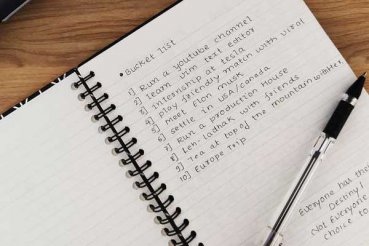 • Bucket list
1] Run a youtube channel
2] learn vim text editor
3] Internship at tesla
4] play friendly match with viral
5] Meet Elon musk
6] settle in USA/canada
7] Run a production House
8] Leh-ladhak with friends
9] Tea at top of the mountain with
10] Europe Trip
Everyone has the
Destiny!
(Not Everyone
choice to